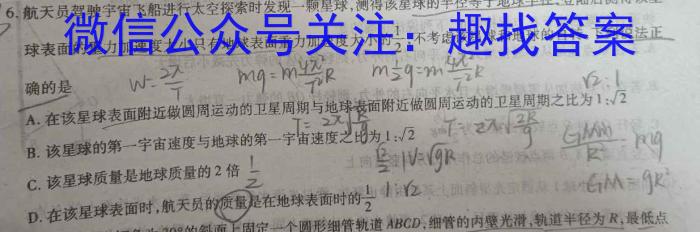 6. 航天员驾驶宇宙飞船进行太空探索时发现一颗星球,测得该星球的半径等于地球半径,登陆后测得该星
微信公众号关注:趣找答案
球表面的重力加速度大小只有地球表面重力加速度大小的1/2,不考虑
法正
确的是
W=2π/T mg=m4π²/T²R m1/2g=m4π²/T²R
A. 在该星球表面附近做圆周运动的卫星周期与地球表面附近做圆周运动的卫星周期之比为1:√2
√2:1
T=2π√R/g T=2π√2R/g
B. 该星球的第一宇宙速度与地球的第一宇宙速度之比为1:√2
V=√gR
GMm/R² mg
C. 该星球质量是地球质量的2倍 1/2
GM=gR²
D. 在该星球表面时,航天员的质量是在地球表面时的1/2
1:√2
的斜面上固定一个圆形细管轨道ABCD,细管的内壁光滑,轨道半径为R,最低点